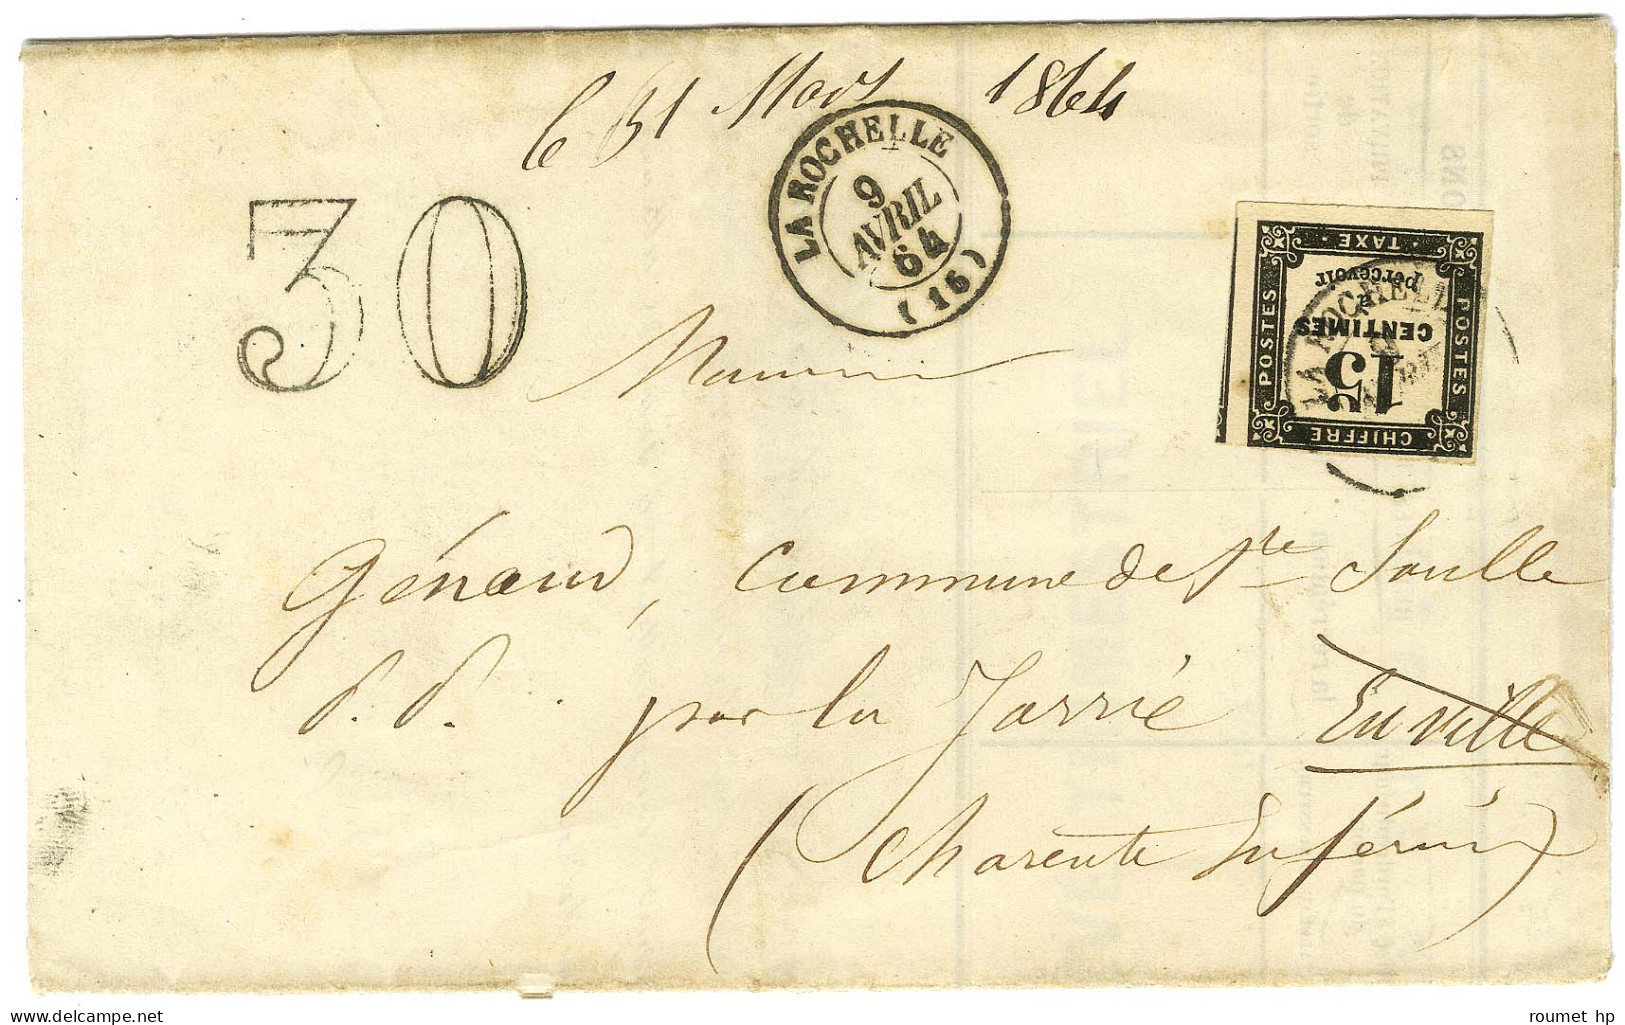 le 31 Mars 1864
30
LA ROCHELLE
9
AVRIL
64
(16)
CHIFFRE
15
CENTIMES
à
percevoir
TAXE
POSTES
POSTES
LA ROCHELLE
9
AVRIL
Monsieur
Génaud, Commune de Ste Soulle
P. P. par la Jarrie En ville
(Charente Inférieure)
roumet hp